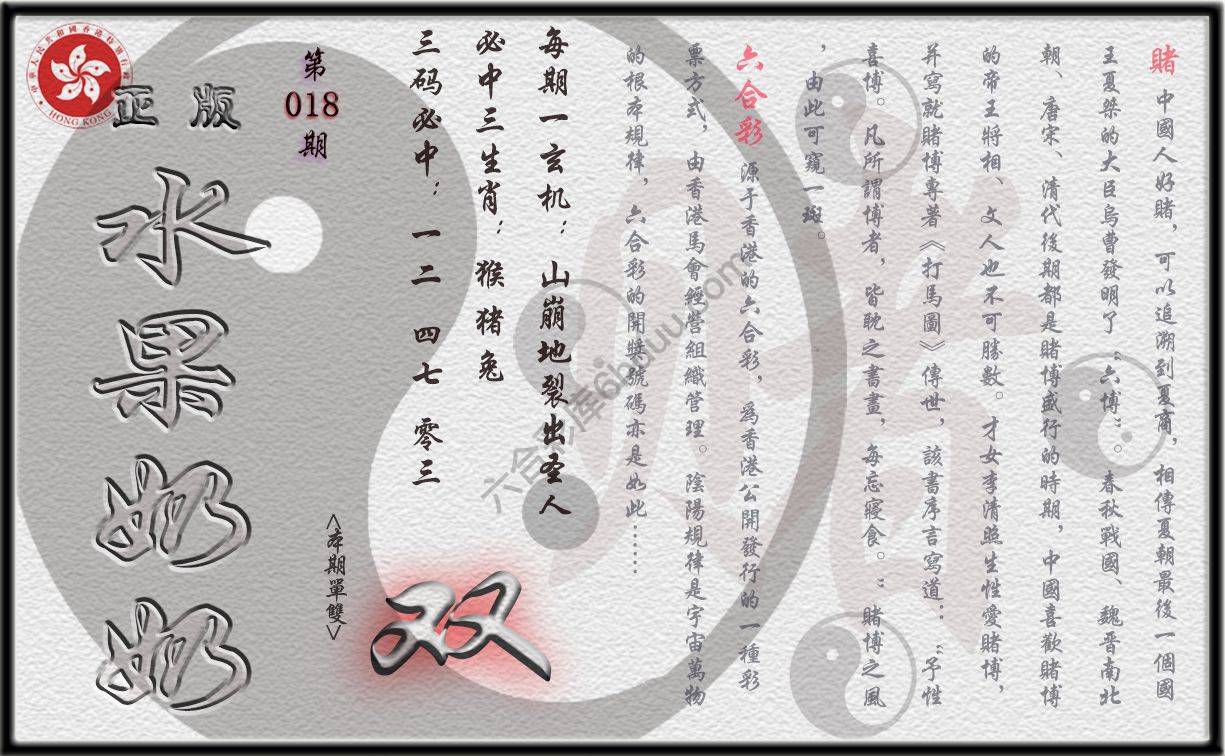 賭 中國人好賭，可以追溯到夏商，相傳夏朝最後一個國
王夏桀的大臣烏曹發明了“六博”。春秋戰國、魏晋南北
朝、唐宋、清代後期都是賭博盛行的時期，中國喜歡賭博
的帝王將相、文人也不可勝數。才女李清照生性愛賭博，
并寫就賭博專著《打馬圖》傳世，該書序言寫道：“予性
喜博。凡所謂博者，皆耽之書畫，每忘寢食。”賭博之風
，由此可窺一斑。
六合彩 源于香港的六合彩，爲香港公開發行的一種彩
票方式，由香港馬會經營組織管理。陰陽規律是宇宙萬物
的根本規律，六合彩的開獎號碼亦是如此……
每期一玄机：山崩地裂出圣人
必中三生肖：猴猪兔
三码必中：一二 四七 零三
第018期
<本期單雙>
双
正版
水果奶奶
HONG KONG